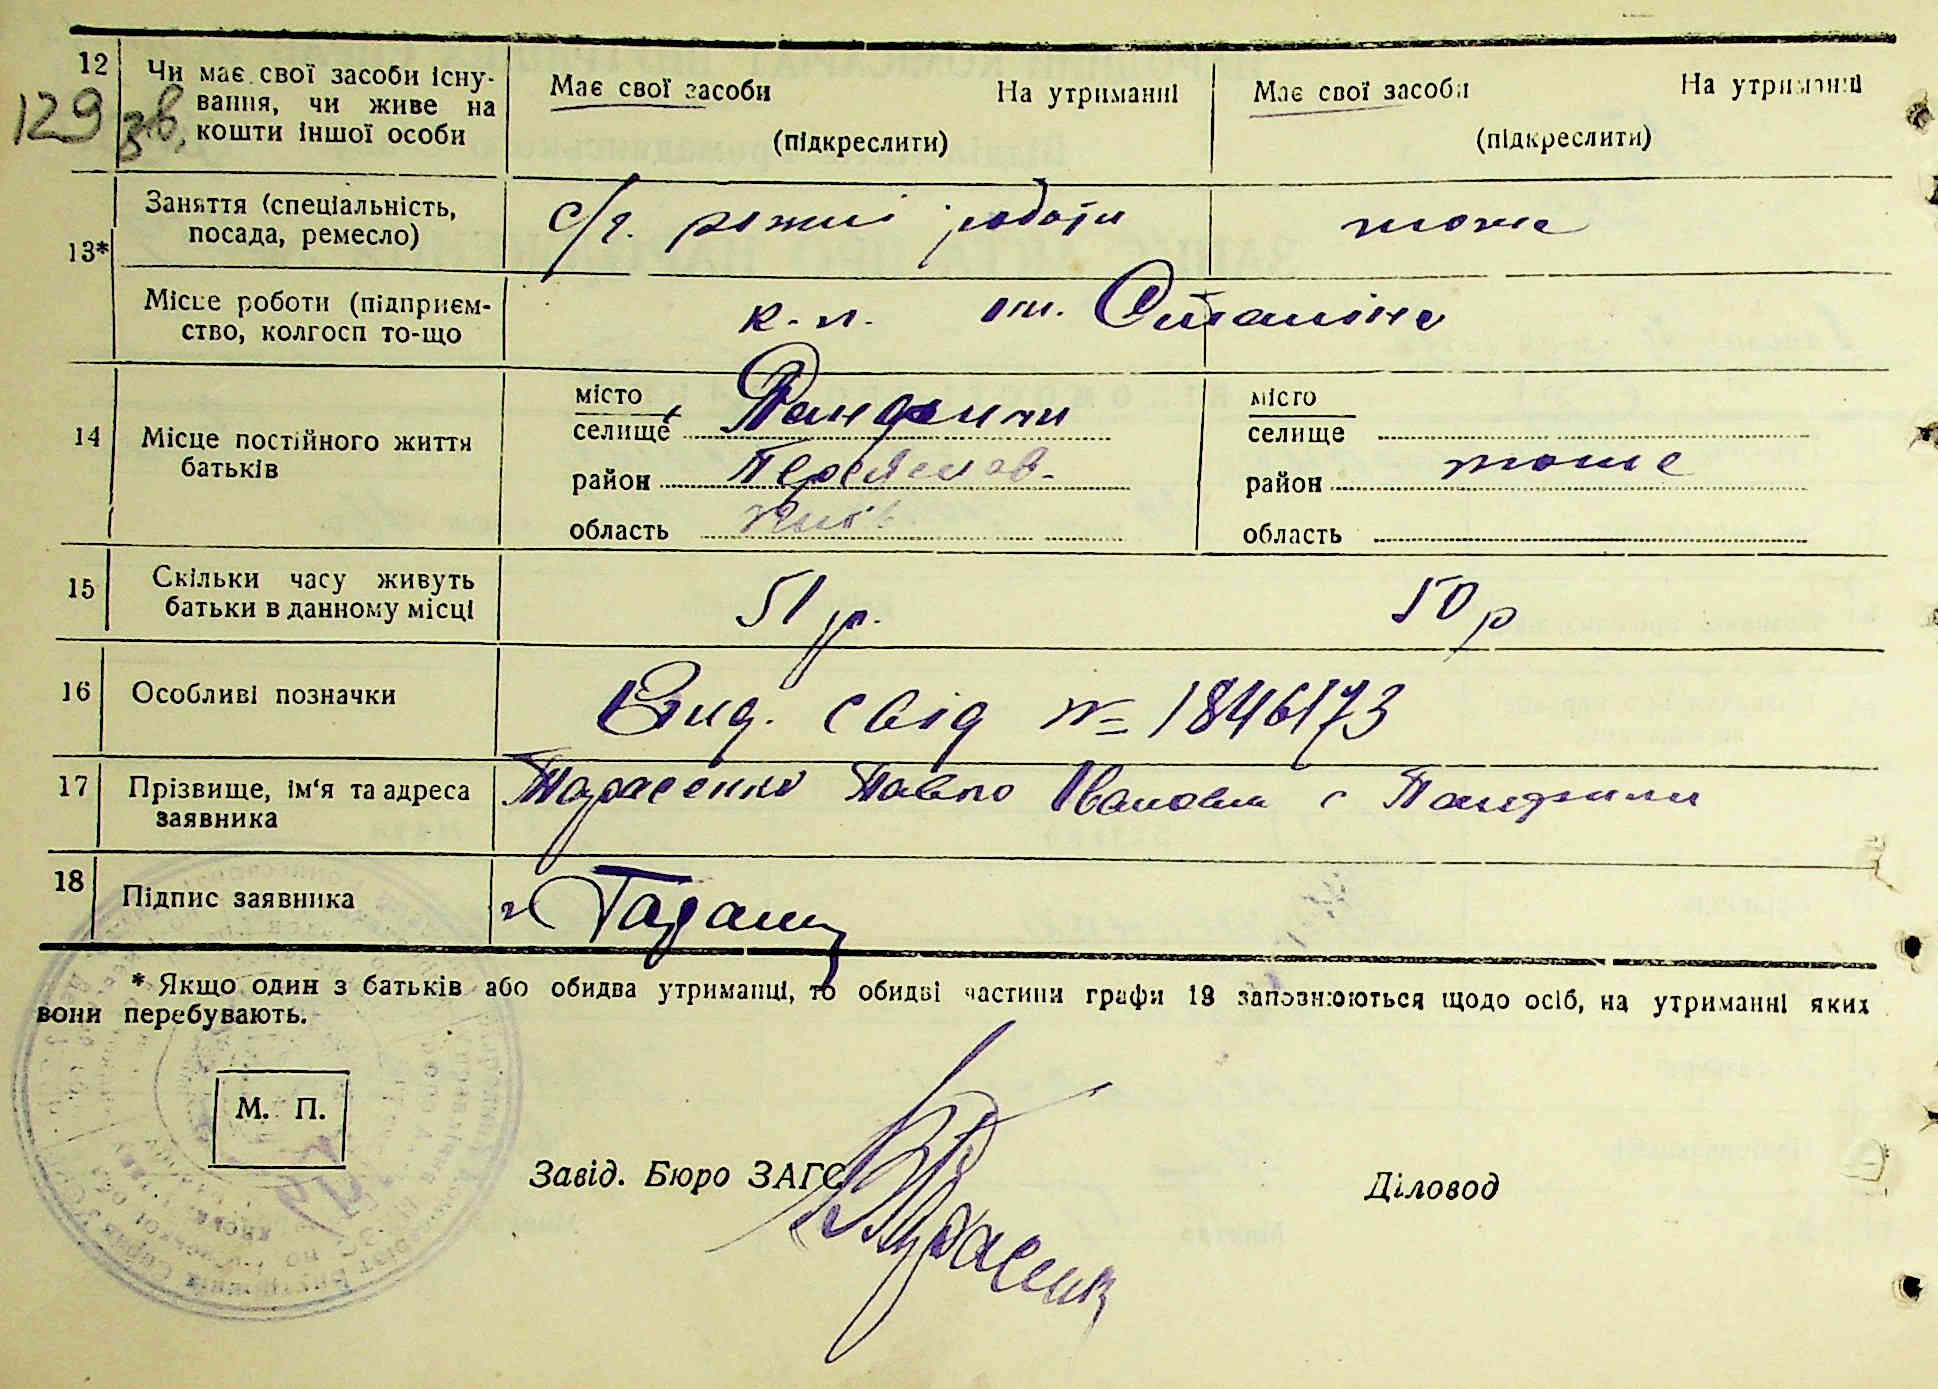 12
Чи має свої засоби існу-
вання, чи живе на
кошти іншої особи
129 зв.
Має свої засоби На утриманні
(підкреслити)
Має свої засоби На утриманні
(підкреслити)
13*
Заняття (спеціальність,
посада, ремесло)
с/г. ріжні роботи
тоже
Місце роботи (підприєм-
ство, колгосп то-що
к-п. ім. Сталіна
14
Місце постійного життя
батьків
місто
селище Пандинки
район Переяслав.
область Київ
місто
селище
район тоже
область
15
Скільки часу живуть
батьки в данному місці
51 р.
50 р
16
Особливі позначки
Вид. свід № 1846173
17
Прізвище, ім'я та адреса
заявника
Тарасенко Павло Іванович с
18
Підпис заявника
* Якщо один з батьків або обидва утриманці, то обидві частини графи 13 заповнюються щодо осіб, на утриманні яких
вони перебувають.
М. П.
Завід. Бюро ЗАГС
Діловод